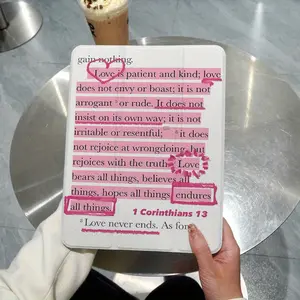 gain nothing.
Love is patient and kind; love
does not envy or boast; it is not
arrogant or rude. It does not
insist on its own way; it is not
irritable or resentful; it does
not rejoice at wrongdoing, but
rejoices with the truth. Love
bears all things, believes all
things, hopes all things, endures
all things.
1 Corinthians 13
Love never ends. As for